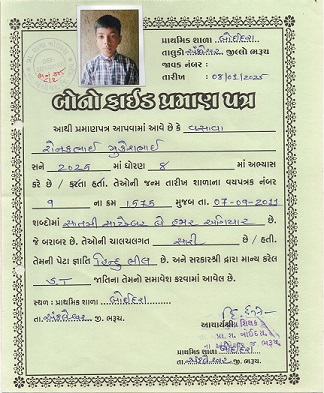 પ્રાથમિક શાળા બોઈદરા
તાલુકો અંકલેશ્વર જીલ્લો ભરૂચ
જાવક નંબર :
તારીખ : 08/01/2025
બોનોફાઈડ પ્રમાણ પત્ર
આથી પ્રમાણપત્ર આપવામાં આવે છે કે વસાવા
રોનકભાઈ મુકેશભાઈ
સને 2025 માં ધોરણ 8 માં અભ્યાસ
કરે છે / કરતા હતાં. તેઓની જન્મ તારીખ શાળાના વયપત્રક નંબર
૧ ના ક્રમ 1575 મુજબ તા. 07-09-2011
શબ્દોમાં સાતમી સપ્ટેમ્બર બે હજાર અગિયાર છે.
જે બરાબર છે. તેઓની ચાલચલગત સારી છે / હતી.
તેમની પેટા જ્ઞાતિ હિન્દુ ભીલ છે. અને સરકારશ્રી દ્વારા માન્ય કરેલ
S.T જાતિના તેમનો સમાવેશ કરવામાં આવેલ છે.
સ્થળ : પ્રાથમિક શાળા બોઈદરા
તા. અંકલેશ્વર જી. ભરૂચ.
આચાર્યશ્રી
પ્રાથમિક શાળા બોઈદરા
તા. અંકલેશ્વર જી. ભરૂચ.